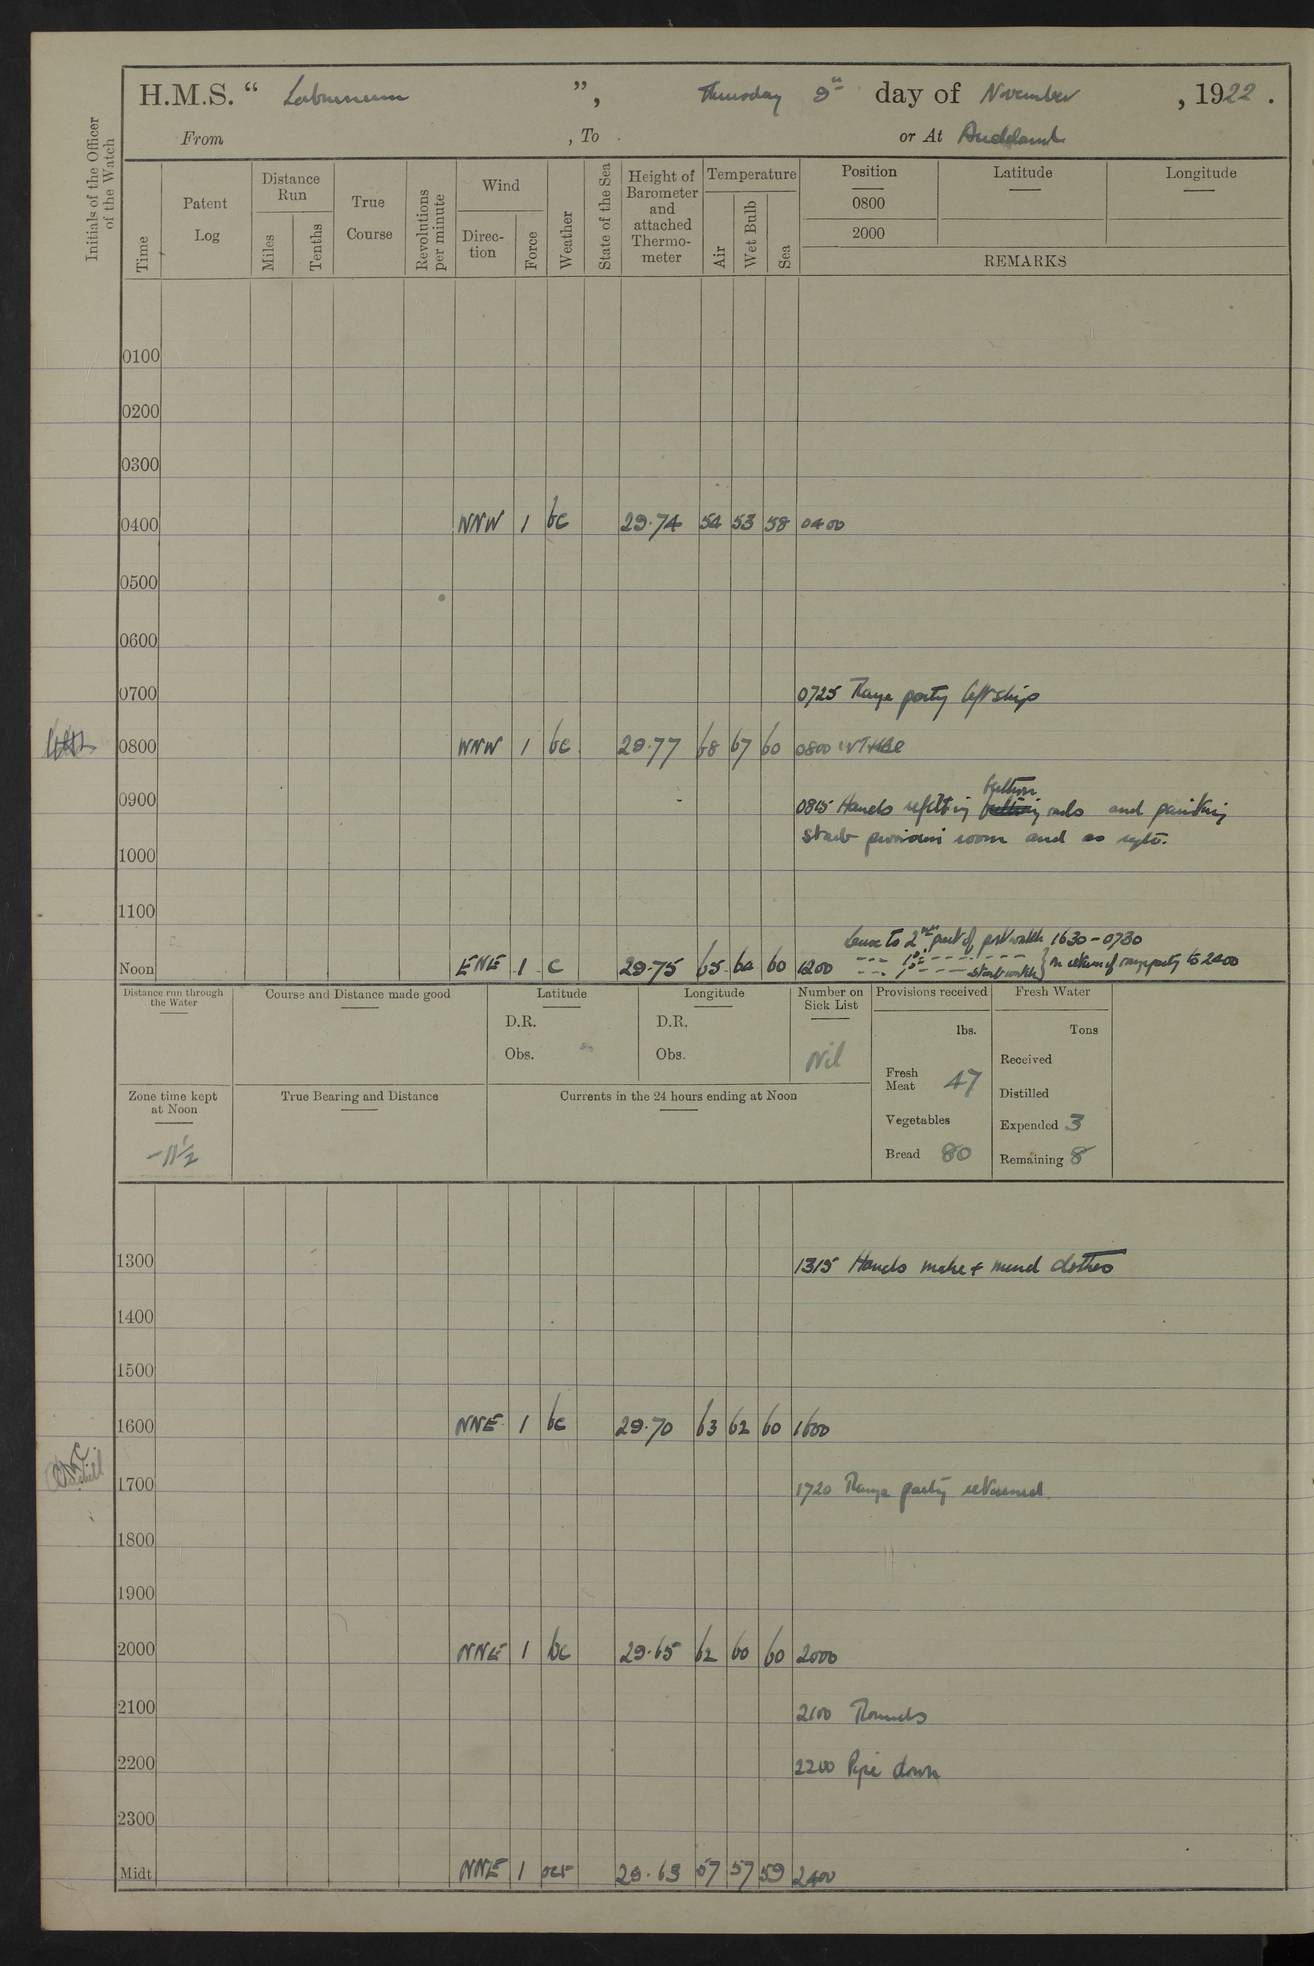 H.M.S. " Laburnum ", Thursday 9th day of November, 1922.
From , To . or At Auckland
Initials of the Officer
of the Watch
Time
Patent
Log
Distance
Run
Miles
Tenths
True
Course
Revolutions
per minute
Wind
Direc-
tion
Force
Weather
State of the Sea
Height of
Barometer
and
attached
Thermo-
meter
Temperature
Air
Wet Bulb
Sea
Position
0800
2000
Latitude
Longitude
REMARKS
0100
0200
0300
0400 WNW 1 bc 29.74 54 53 58 0400
0500
0600
0700 0725 Range party left ship
0800 WNW 1 bc 29.77 68 67 60 0800
0900 0815 Hands refitting rods and painting
starb provision room and as
1000
1100
leave to 2nd part of port watch 1630-0730
--- 1st ------
--- 1st --- starb watch } on return of range party to 2400
Noon ENE 1 c 29.75 65 62 60 1200
Distance run through
the Water
Course and Distance made good
Latitude
D.R.
Obs.
Longitude
D.R.
Obs.
Number on
Sick List
Nil
Provisions received
lbs.
Fresh
Meat 47
Vegetables
Bread 80
Fresh Water
Tons
Received
Distilled
Expended 3
Remaining 8
Zone time kept
at Noon
-11½
True Bearing and Distance
Currents in the 24 hours ending at Noon
1300 1315 Hands make & mend clothes
1400
1500
1600 NNE 1 bc 29.70 63 62 60 1600
1700 1720 Range party returned
1800
1900
2000 NNE 1 bc 29.65 62 60 60 2000
2100 2100 Rounds
2200 2200 Pipe down
2300
Midt NNE 1 29.63 57 57 59 2400